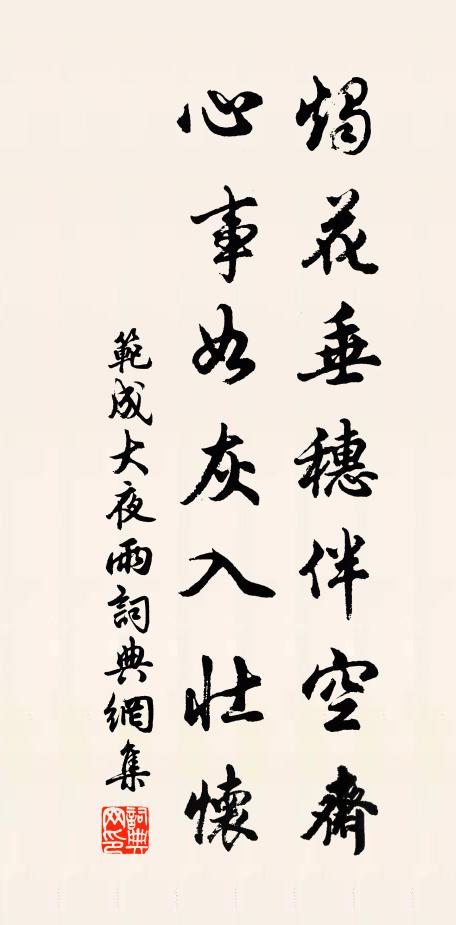 燭花垂穗伴空齋
心事如灰入壯懷
範成大夜雨詞典網集
詞典網印